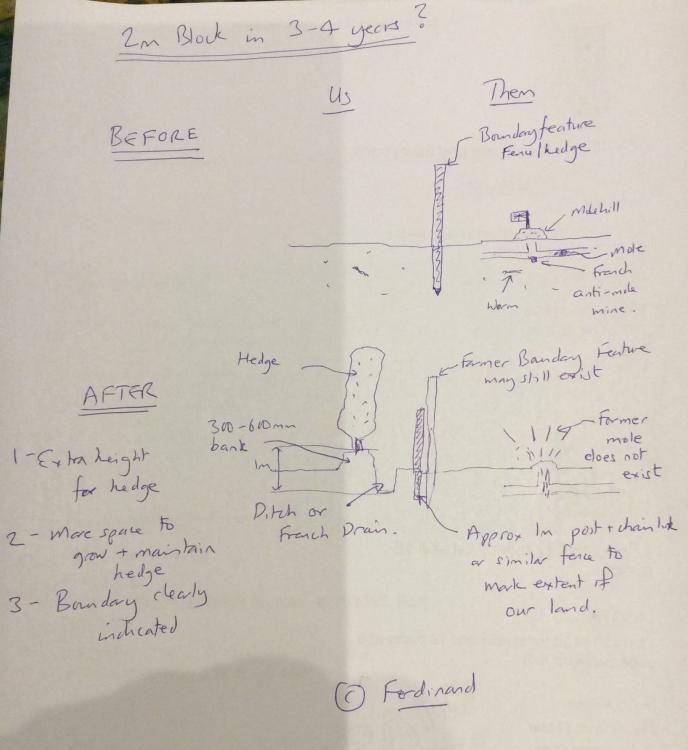 2m Block in 3-4 years?
Us
Them
BEFORE
Boundary feature
Fence/hedge
Molehill
Mole
French
anti-mole
mine.
Worm
AFTER
Hedge
Former Boundary Feature
may still exist
300-600mm
bank
1m
Former
mole
does not
exist
1 - Extra height
for hedge
Ditch or
French Drain.
2 - More space to
grow + maintain
hedge
Approx 1m post + chain link
or similar fence to
mark extent of
our land.
3 - Boundary clearly
indicated
© Ferdinand